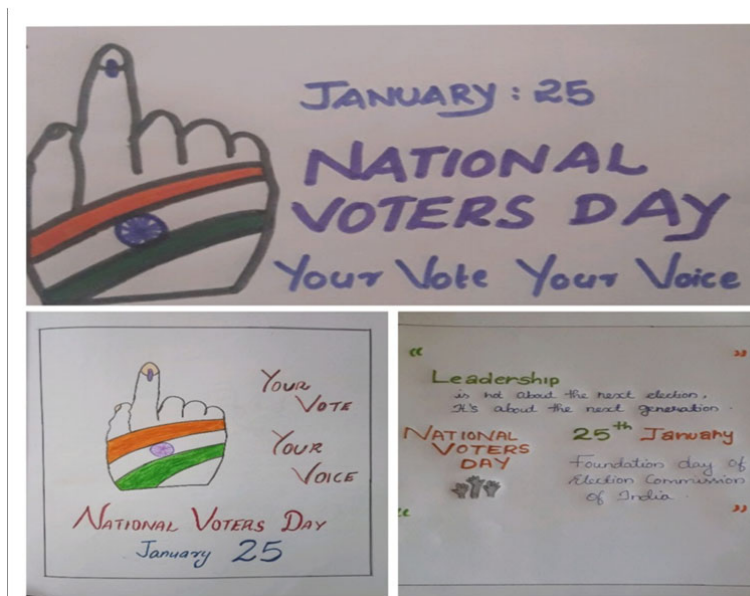 JANUARY : 25
NATIONAL
VOTERS DAY
Your Vote Your Voice
YOUR
VOTE
YOUR
VOICE
NATIONAL VOTERS DAY
January 25
“ ”
Leadership
is not about the next election,
It's about the next generation.
NATIONAL
VOTERS
DAY
25th January
Foundation day of
Election Commission
of India.
“ ”